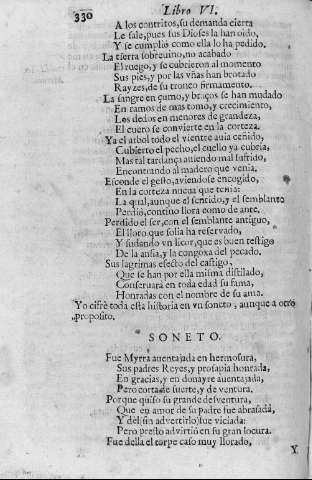 330
Libro VI.
A los contritos, su demanda cierta
Le sale, pues sus Dioses la han oìdo,
Y se cumpliò como ella lo ha pedido.
La tierra sobrevino, no acabado
El ruego, y se cubrieron al momento
Sus pies, y por las vñas han brotado
Rayzes, de su tronco firmamento.
La sangre en çumo, y braços se han mudado
En ramos de mas tomo, y crecimiento,
Los dedos en menores de grandeza,
El cuero se convierte en la corteza.
Ya el arbol todo el vientre avia ceñido,
Cubierto el pecho, el cuello ya cubria,
Mas tal tardança aviendo mal sufrido,
Encontrando al madero que venia.
Esconde el gesto, aviendose encogido,
En la corteza nueva que tenia:
La qual, aunque el sentido, y el semblante
Perdiò, contino llora como de ante.
Perdido el ser, con el semblante antiguo,
El lloro que solia ha reservado,
Y sudando vn licor, que es buen testigo
De la ansia, y la congoxa del pecado.
Sus lagrimas efecto del castigo,
Que se han por ella misma distilado,
Conservarà en toda edad su fama,
Honradas con el nombre de su ama.
Yo cifrè toda esta historia en vn soneto, aunque a otro
proposito.
SONETO.
Fue Myrra aventajada en hermosura,
Sus padres Reyes, y prosapia honrada,
En gracias, y en donayre aventajada,
Pero corta de suerte, y de ventura.
Porque quiso su grande desventura,
Que en amor de su padre fue abrasada,
Y del sin advertirlo, fue viciada:
Pero presto advirtiò en su gran locura.
Fue della el torpe caso muy llorado,
Y